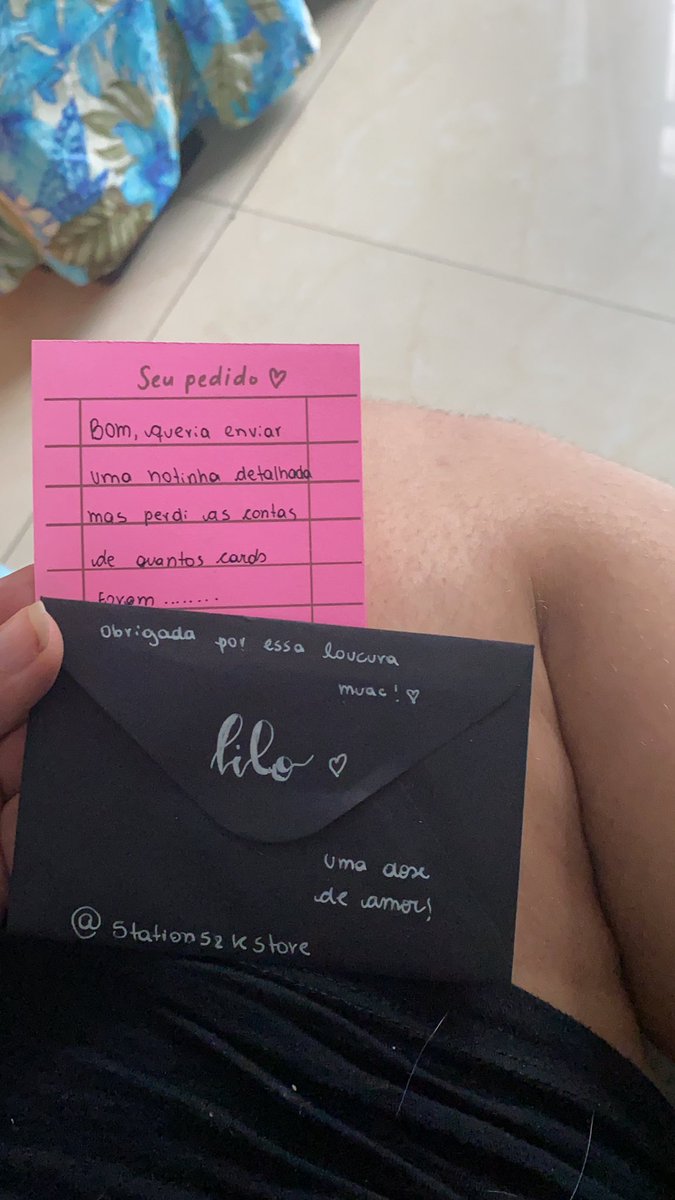 Seu pedido ♡
Bom, queria enviar
uma notinha detalhada
mas perdi as contas
de quantos cards
foram ........
obrigada por essa loucura
muac! ♡
lilo ♡
uma dose
de amor!
@ 5tation52kstore